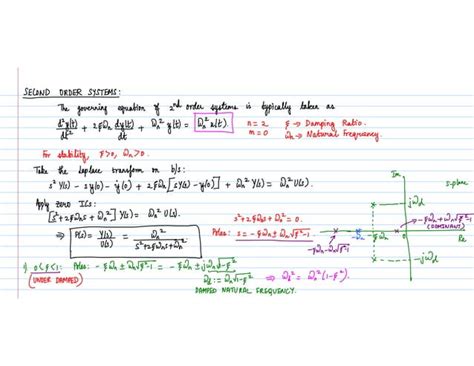 SECOND ORDER SYSTEMS:
The governing equation of 2nd order systems is typically taken as
d²y(t)/dt² + 2ξωₙ dy(t)/dt + ωₙ² y(t) = ωₙ² u(t). n = 2, m = 0 ξ → Damping Ratio. ωₙ → Natural Frequency.
For stability, ξ>0, ωₙ>0.
Take the Laplace transform on b/s:
s² Y(s) - sy(0) - ẏ(0) + 2ξωₙ[sY(s) - y(0)] + ωₙ² Y(s) = ωₙ² U(s).
Apply zero ICs:
[s² + 2ξωₙs + ωₙ²] Y(s) = ωₙ² U(s).
⇒ P(s) = Y(s)/U(s) = ωₙ²/(s² + 2ξωₙs + ωₙ²)
s² + 2ξωₙs + ωₙ² = 0.
Poles: s = -ξωₙ ± ωₙ√(ξ²-1)
1) 0<ξ<1: Poles: -ξωₙ ± ωₙ√(ξ²-1) = -ξωₙ ± jωₙ√(1-ξ²)
(UNDER DAMPED)
ω_d := ωₙ√(1-ξ²) ⇒ ω_d² = ωₙ²(1-ξ²).
DAMPED NATURAL FREQUENCY.
Im
s-plane
jω_d
-ξωₙ + ωₙ√(ξ²-1)
(DOMINANT)
-ωₙ
-ξωₙ
0
Re
-ξωₙ - ωₙ√(ξ²-1)
-jω_d